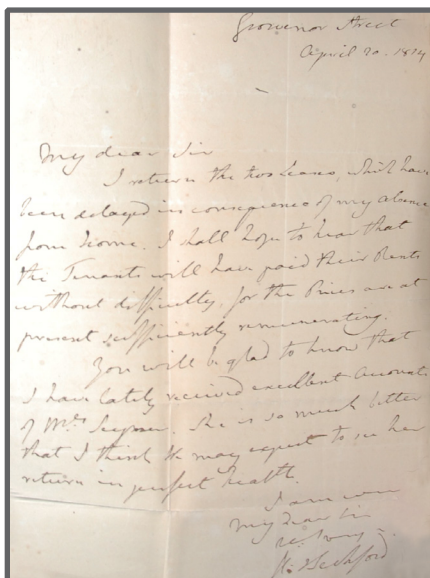 Grosvenor Street
April 20. 1814
My dear Sir
I return the two Leases, which have
been delayed in consequence of my absence
from home. I shall hope to hear that
the Tenants will have paid their Rents
without difficulty, for the Prices are at
present sufficiently remunerating.
You will be glad to know that
I have lately received excellent accounts
of Mrs. She is so much better
that I think we may expect to see her
return in perfect health.
I am
my dear Sir